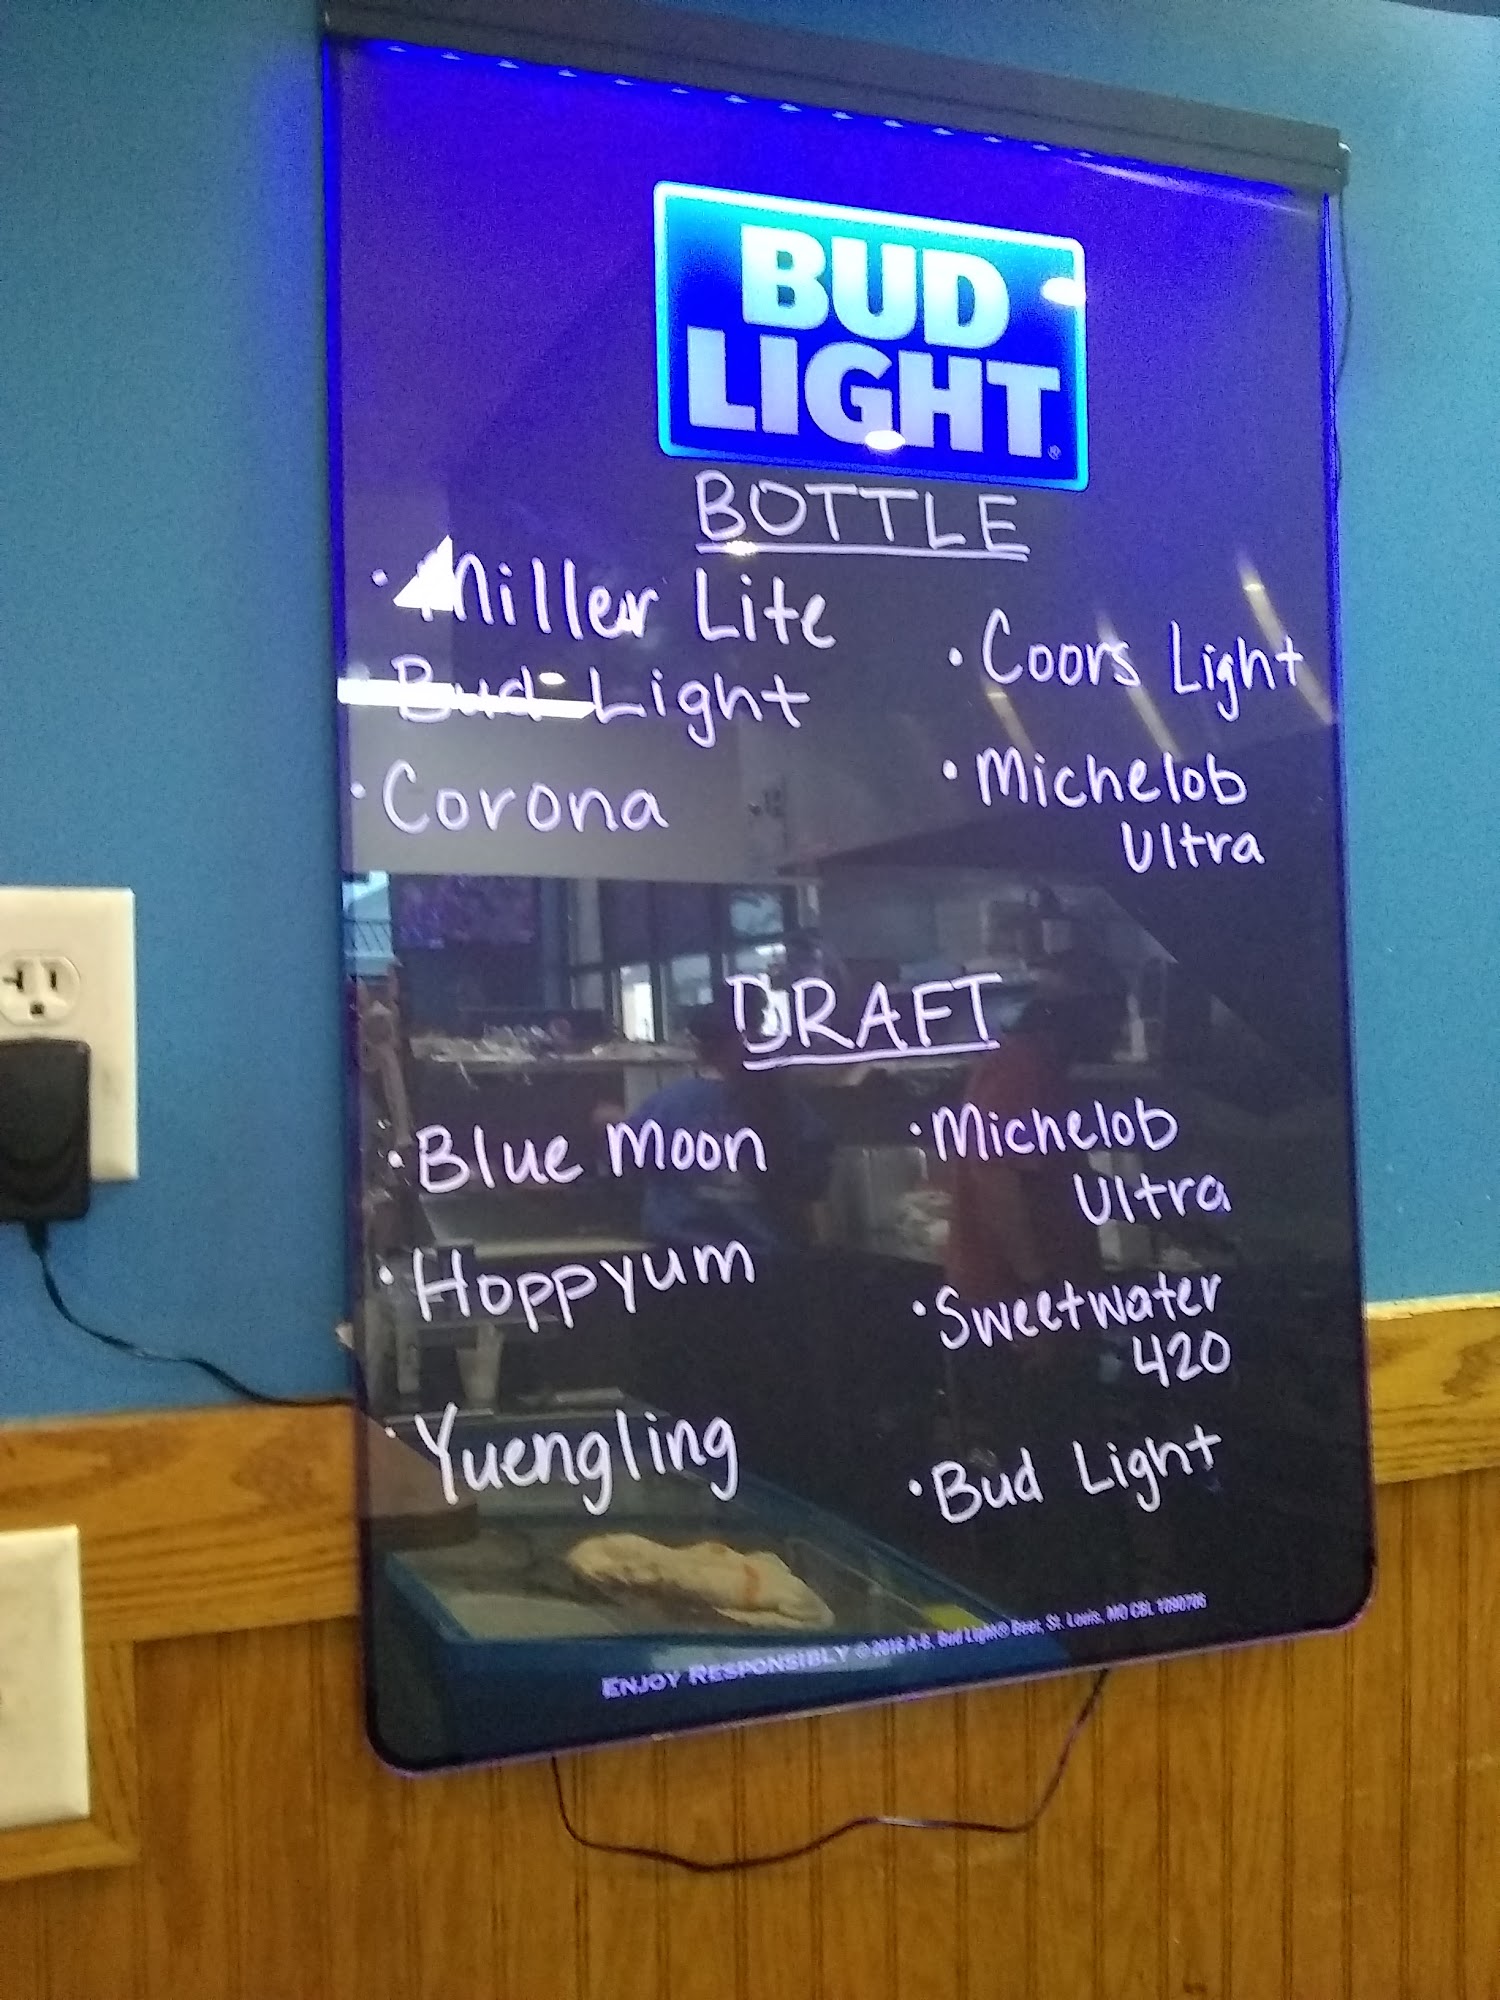 BUD
LIGHT®
BOTTLE
• Miller Lite
Bud Light
• Corona
• Coors Light
• Michelob
Ultra
DRAFT
• Blue Moon
• Hoppyum
• Yuengling
• Michelob
Ultra
• Sweetwater
420
• Bud Light
ENJOY RESPONSIBLY © 2016 A-B, Bud Light® Beer, St. Louis, MO CBL 1090706